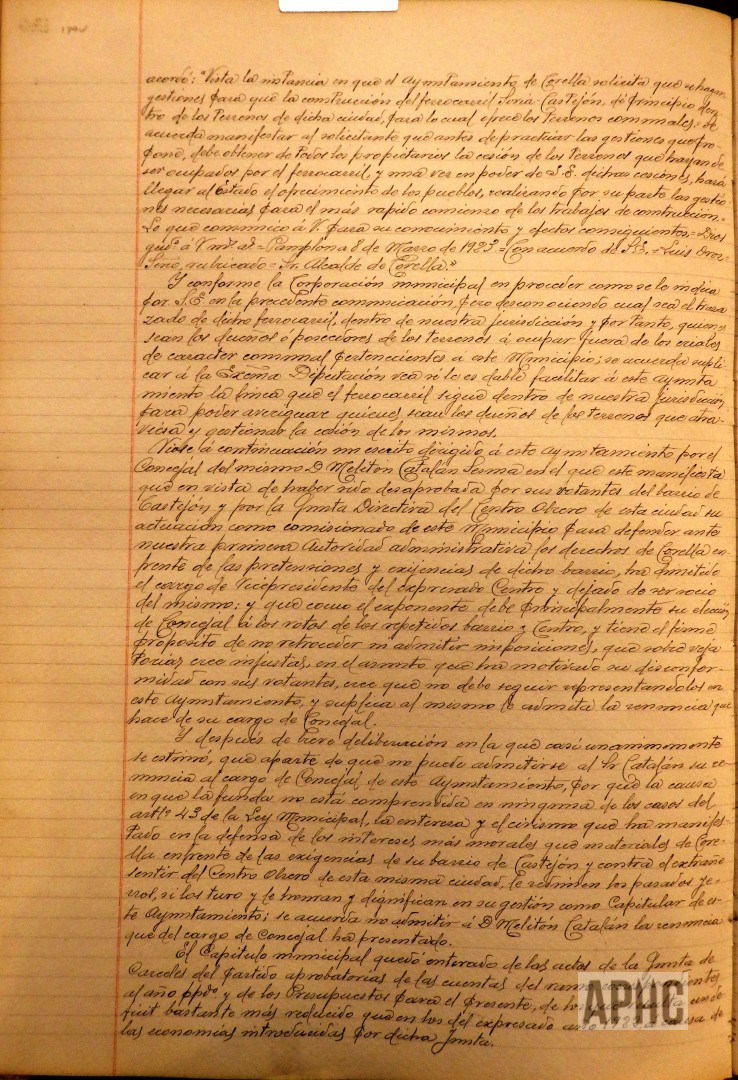 acordó: "Vista la instancia en que el Ayuntamiento de Corella solicita que se hagan
gestiones para que la construcción del ferrocarril Soria-Castejón, dé principio den-
tro de los terrenos de dicha ciudad, para lo cual ofrece los terrenos comunales, = se
acuerda manifestar al solicitante que antes de practicar las gestiones que pro-
pone, debe obtener de todos los propietarios la cesión de los terrenos que hayan de
ser ocupados por el ferrocarril, y una vez en poder de S.E. dichas cesiones, hará
llegar al Estado el ofrecimiento de los pueblos, realizando por su parte las gestio-
nes necesarias para el más rapido comienzo de los trabajos de construcción.=
Lo que comunico á V. para su conocimiento y efectos consiguientes.= Dios
gue á V. ms. as.= Pamplona 8 de Marzo de 1923= Con acuerdo de S.E.= Luis Oroz=
Seno, rubricado= Sr. Alcalde de Corella."
Y conforme la Corporación municipal en proceder como se lo indica
por S.E. en la precedente comunicación, pero desconociendo cual sea el tra-
zado de dicho ferrocarril, dentro de nuestra jurisdicción y por tanto, quienes
sean los dueños ó poseedores de los terrenos á ocupar fuera de los eriales
de caracter comunal pertenecientes á este Municipio; se acuerda supli-
car á la Excma Diputación vea si le es dable facilitar á este Ayunta
miento la linea que el ferrocarril sigue dentro de nuestra jurisdicción
para poder averiguar quienes sean los dueños de los terrenos que atra-
viesa y gestionar la cesión de los mismos.
Vióse á continuación un escrito dirigido á este Ayuntamiento por el
Concejal del mismo D. Meliton Catalán Serma en el que este manifiesta
que en vista de haber sido desaprobada por sus votantes del barrio de
Castejón y por la Junta Directiva del Centro Obrero de esta ciudad su
actuación como comisionado de este Municipio para defender ante
nuestra primera Autoridad administrativa los derechos de Corella en-
frente de las pretensiones y exigencias de dicho barrio, ha dimitido
el cargo de Vicepresidente del expresado Centro y dejado de ser socio
del mismo: y que como el exponente debe principalmente su elección
de Concejal á los votos de los repetidos barrio y Centro, y tiene el firme
proposito de no retroceder ni admitir imposiciones, que sobre veja
torias cree injustas, en el asunto que ha motivado su disconfor-
midad con sus votantes, cree que no debe seguir representandolos en
este Ayuntamiento, y suplica al mismo le admita la renuncia que
hace de su cargo de Concejal.
Y después de breve deliberación en la que casi unanimemente
se estimó, que aparte de que no puede admitirse al Sr Catalán su re-
nuncia al cargo de Concejal de este Ayuntamiento, por que la causa
en que la funda no está comprendida en ninguna de los casos del
artlo 43 de la Ley Municipal, la entereza y el civismo que ha manifes-
tado en la defensa de los intereses más morales que materiales de Core-
lla enfrente de las exigencias de su barrio de Castejón y contra el extraño
sentir del Centro Obrero de esta misma ciudad, le redimen los pasados ye-
rros, si los tuvo y le honran y dignifican en su gestión como Capitular de es-
te Ayuntamiento; se acuerda no admitir á D. Melitón Catalán la renuncia
que del cargo de Concejal ha presentado.
El Capitulo municipal quedó enterado de las actas de la Junta de
Carceles del Partido aprobatorias de las cuentas del
al año ppdo y de los Presupuestos para el presente, de los
fuit bastante más reducido que en los del expresado año 1922 a causa de
las economias introducidas por dicha Junta.
APHC